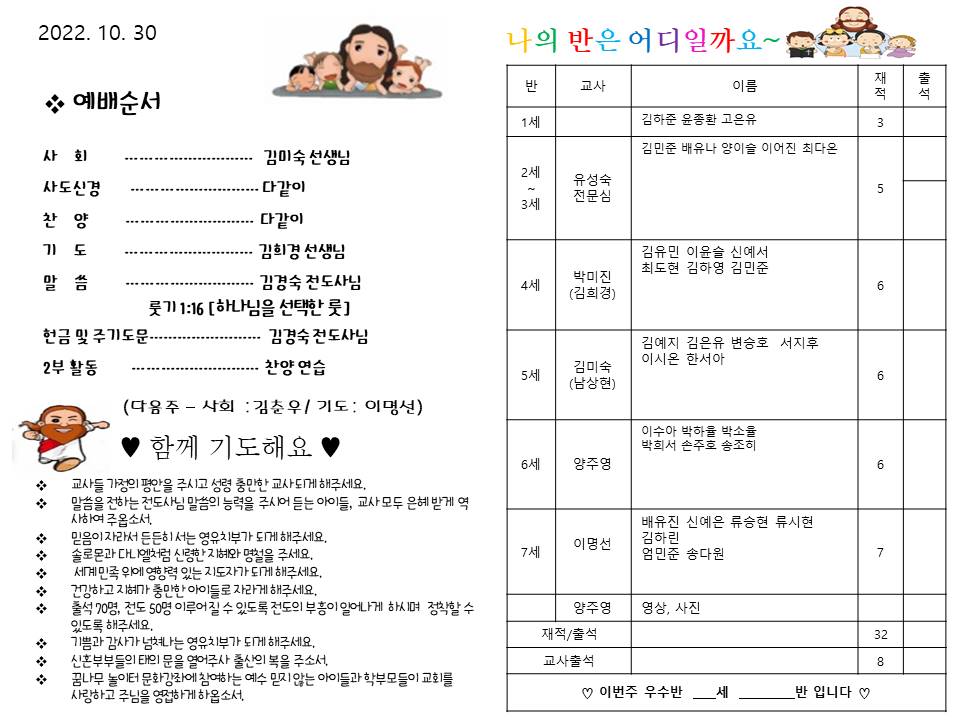 2022. 10. 30
❖ 예배순서
사 회 -------------------------- 김미숙 선생님
사도신경 -------------------------- 다같이
찬 양 -------------------------- 다같이
기 도 -------------------------- 김희경 선생님
말 씀 -------------------------- 김경숙 전도사님
룻기 1:16 [하나님을 선택한 룻]
헌금 및 주기도문------------------------ 김경숙 전도사님
2부 활동 -------------------------- 찬양 연습
(다음주 – 사회 : 김춘우/ 기도 : 이명선)
♥ 함께 기도해요 ♥
❖ 교사들 가정의 평안을 주시고 성령 충만한 교사 되게 해주세요.
❖ 말씀을 전하는 전도사님 말씀의 능력을 주시어 듣는 아이들, 교사 모두 은혜 받게 역
사하여 주옵소서.
❖ 믿음이 자라서 든든히 서는 영유치부가 되게 해주세요.
❖ 솔로몬과 다니엘처럼 신령한 지혜와 명철을 주세요.
❖ 세계 민족 위에 영향력 있는 지도자가 되게 해주세요.
❖ 건강하고 지혜가 충만한 아이들로 자라게 해주세요.
❖ 출석 70명, 전도 50명 이루어 질 수 있도록 전도의 부흥이 일어나게 하시며 정착할 수
있도록 해주세요.
❖ 기쁨과 감사가 넘쳐나는 영유치부가 되게 해주세요.
❖ 신혼부부들의 태의 문을 열어주사 출산의 복을 주소서.
❖ 꿈나무 놀이터 문화강좌에 참여하는 예수 믿지 않는 아이들과 학부모들이 교회를
사랑하고 주님을 영접하게 하옵소서.
나의 반은 어디일까요~
반 교사 이름 재적 출석
1세 김하준 윤종환 고은유 3
2세 ~ 3세 유성숙 전문심 김민준 배유나 양이슬 이어진 최다온 5
4세 박미진 (김희경) 김유민 이윤슬 신예서
최도현 김하영 김민준 6
5세 김미숙 (남상현) 김예지 김은유 변승호 서지후
이시온 한서아 6
6세 양주영 이수아 박하율 박소율
박희서 손주호 송조히 6
7세 이명선 배유진 신예은 류승현 류시현
김하린
엄민준 송다원 7
양주영 영상, 사진
재적/출석 32
교사출석 8
♡ 이번주 우수반 ___세 ________반 입니다 ♡